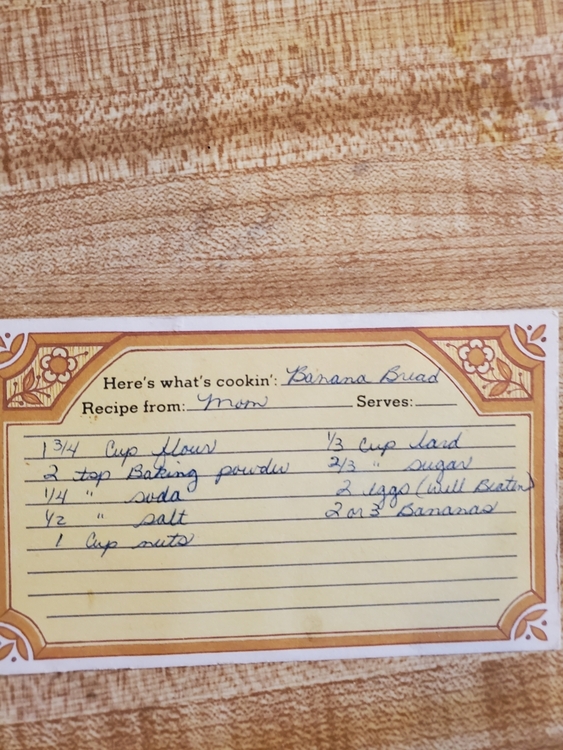 Here's what's cookin': Banana Bread
Recipe from: Mom Serves:
1 3/4 Cup flour
2 tsp Baking powder
1/4 " soda
1/2 " salt
1 Cup nuts
1/3 Cup lard
2/3 " sugar
2 eggs (well Beaten)
2 or 3 Bananas